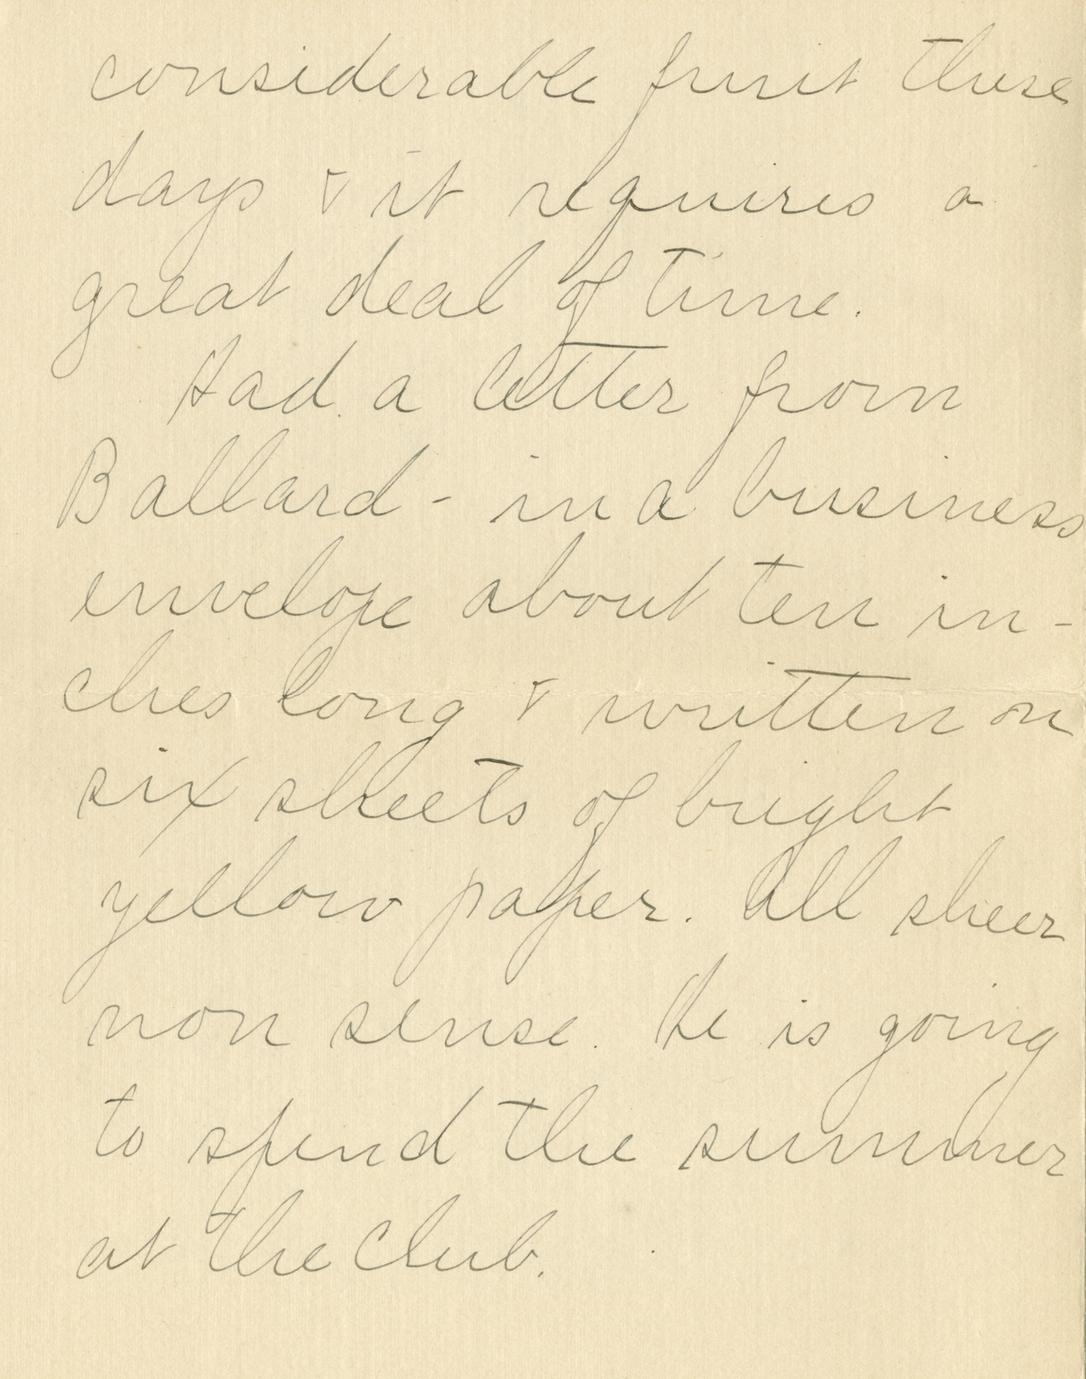 considerable fruit these
days & it requires a
great deal of time.
Had a letter from
Ballard - in a business
envelope about ten in-
ches long & written on
six sheets of bright
yellow paper. All sheer
non sense. He is going
to spend the summer
at the Club.